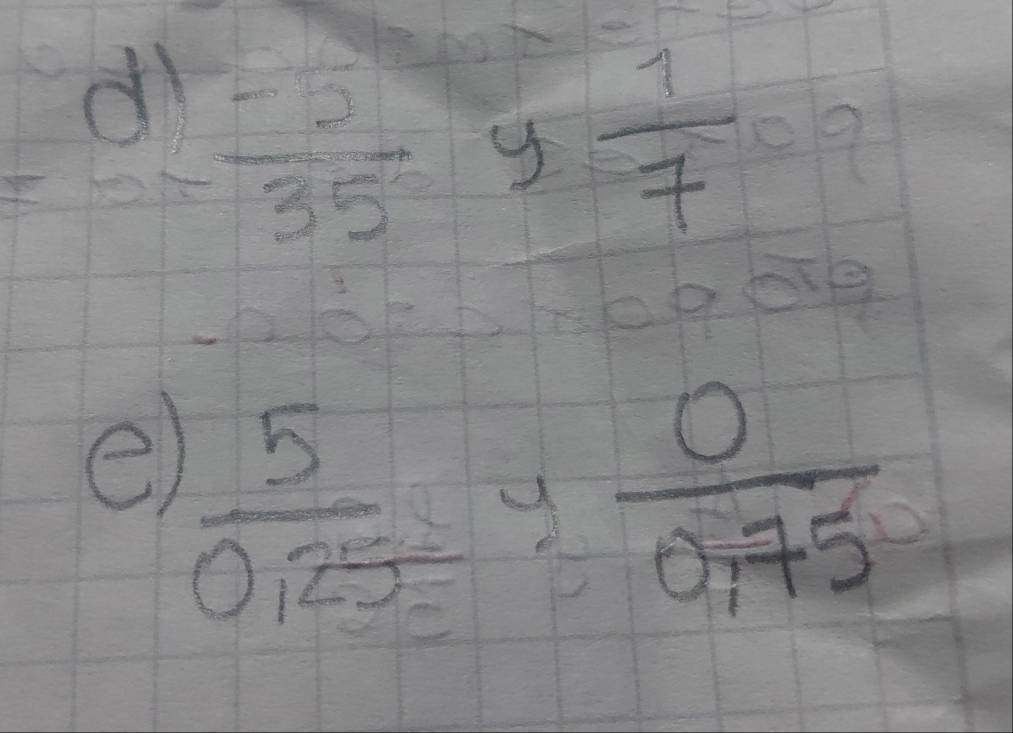 d) -5/35 y 1/7
e) 5/0,25 y 0/0,75